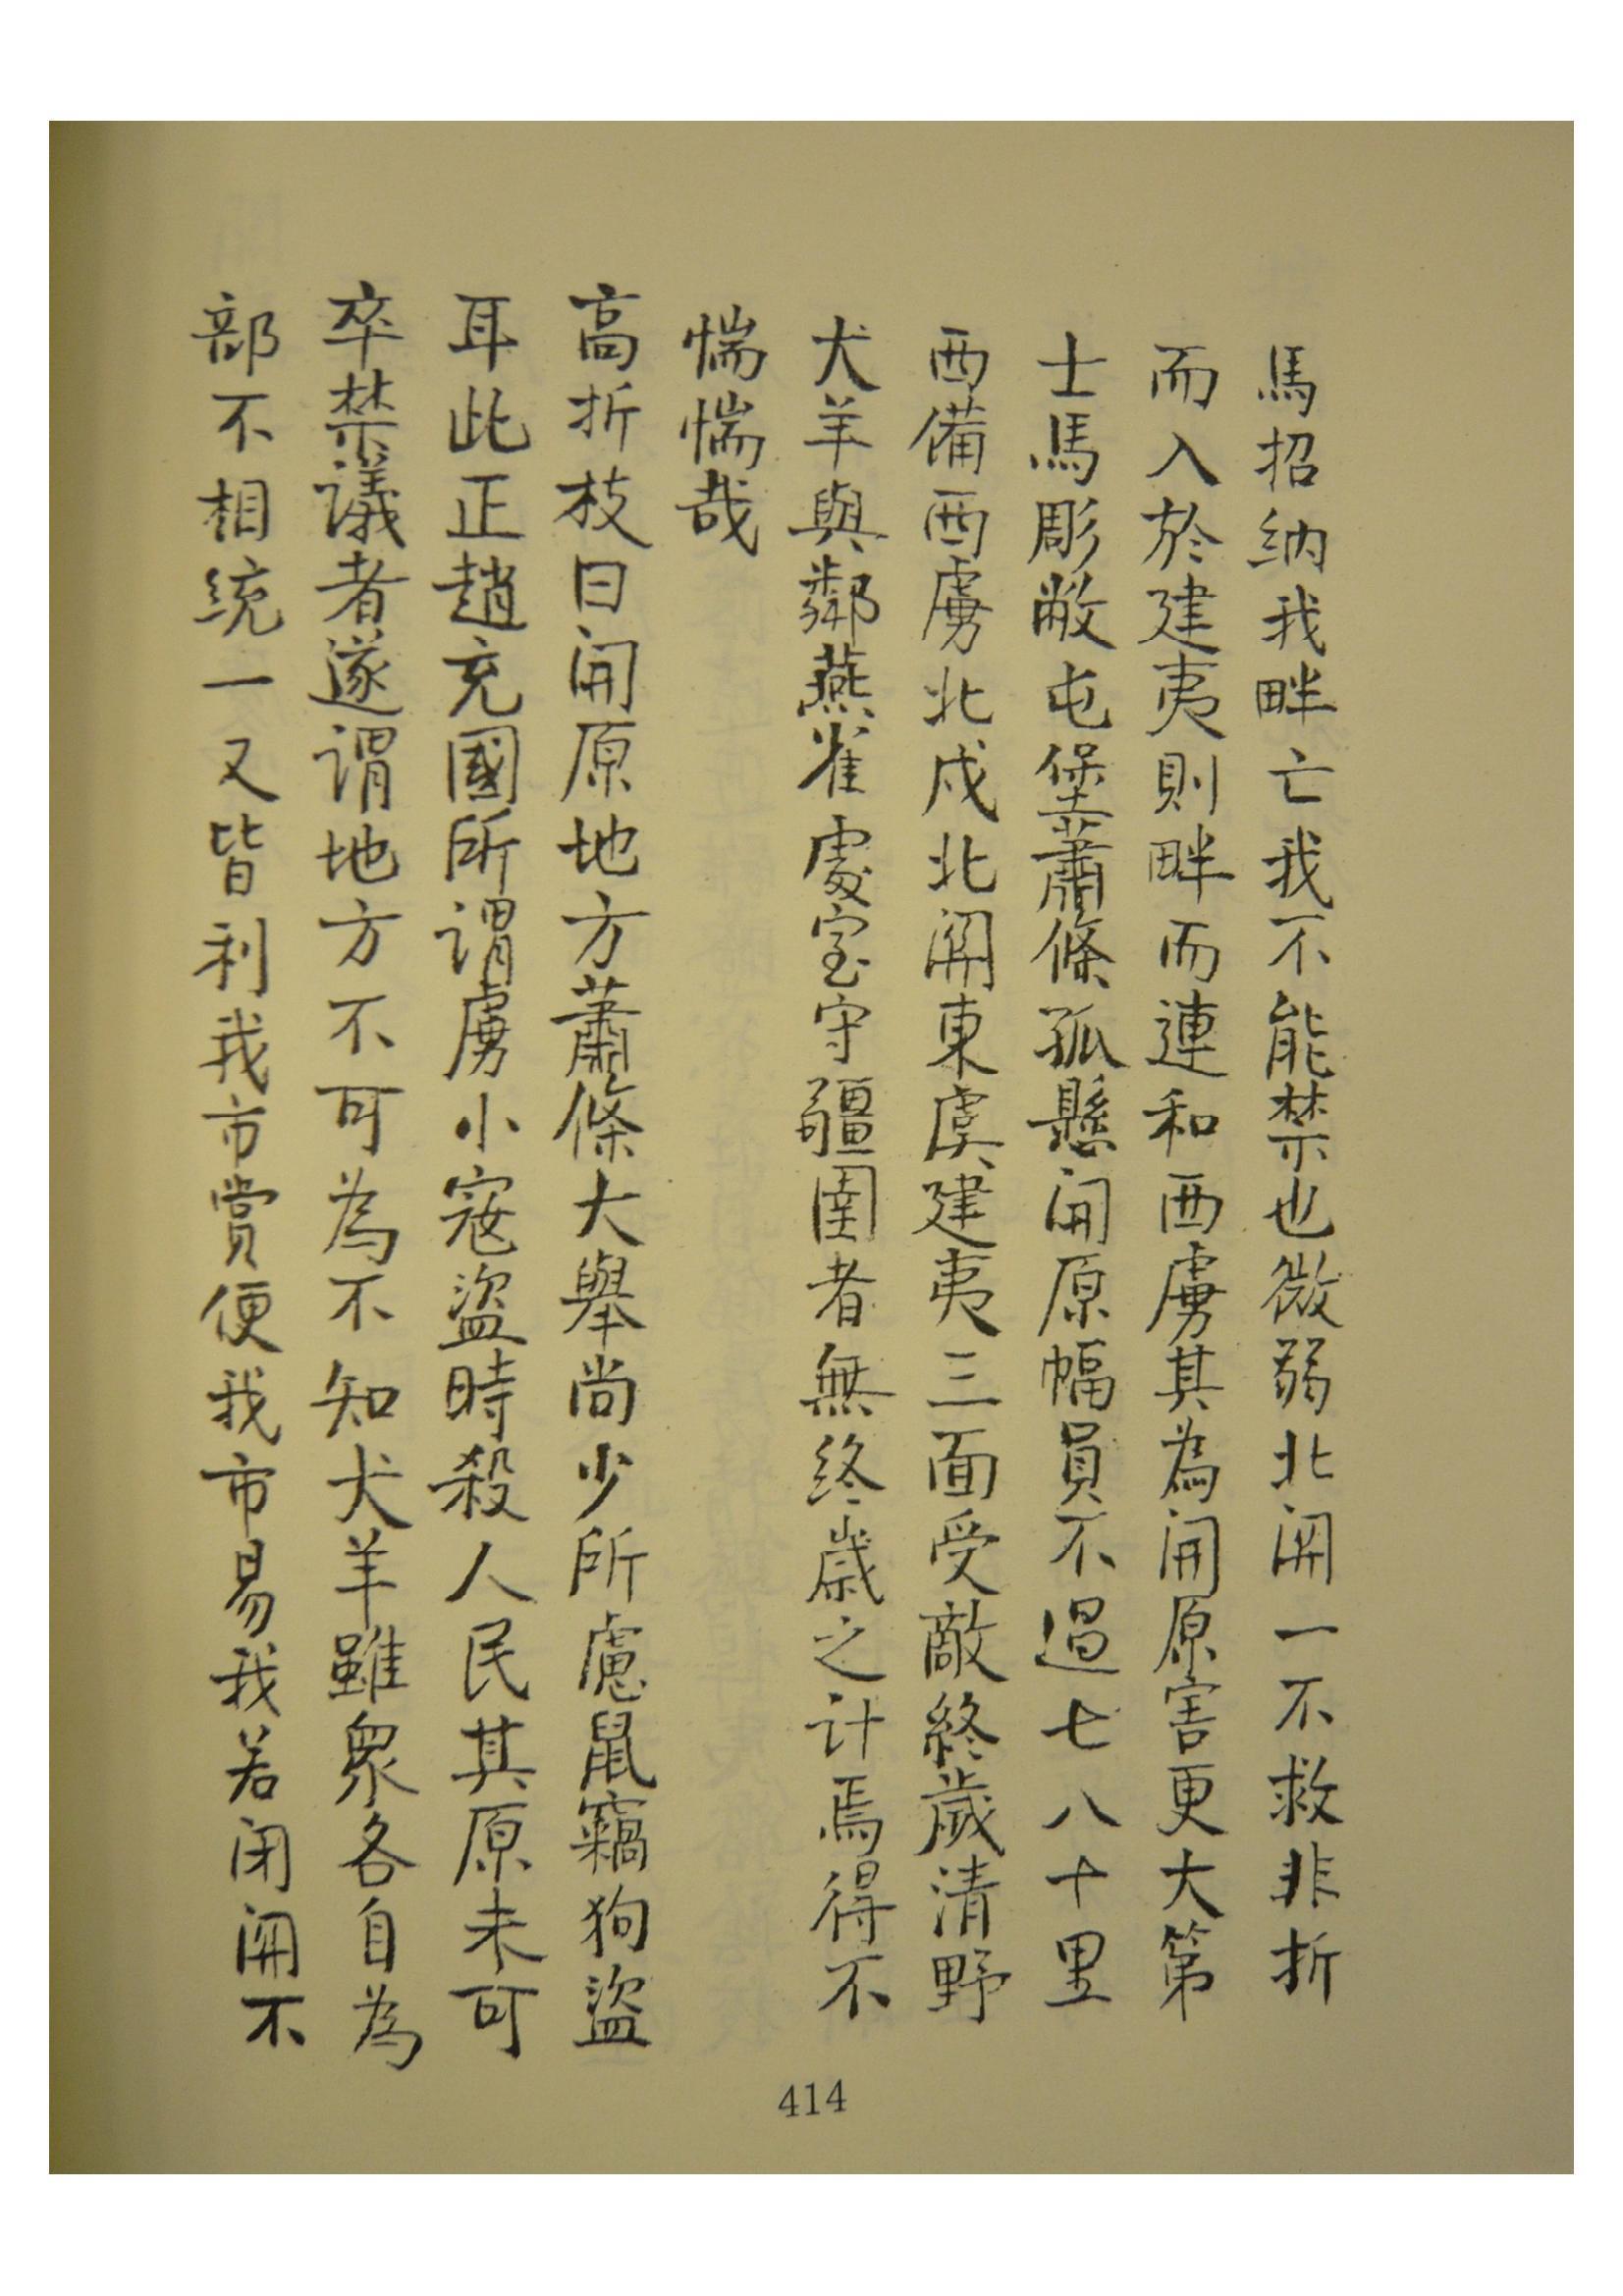 馬招纳我畔亡我不能禁也微弱北関一不救非折
而入於建夷則畔而連和西虜其為開原害更大第
士馬彫敝屯堡蕭條孤懸開原幅員不過七八十里
西備西虜北戍北関東虞建夷三面受敵終歲清野
犬羊與鄰燕雀處室守疆圉者無终歲之计焉得不
惴惴哉
高折枝曰開原地方蕭條大舉尚少所慮鼠竊狗盜
耳此正趙充國所谓虜小寇盜時殺人民其原未可
卒禁議者遂谓地方不可為不知犬羊雖眾各自為
部不相统一又皆利我市賞便我市易我若闭関不
414